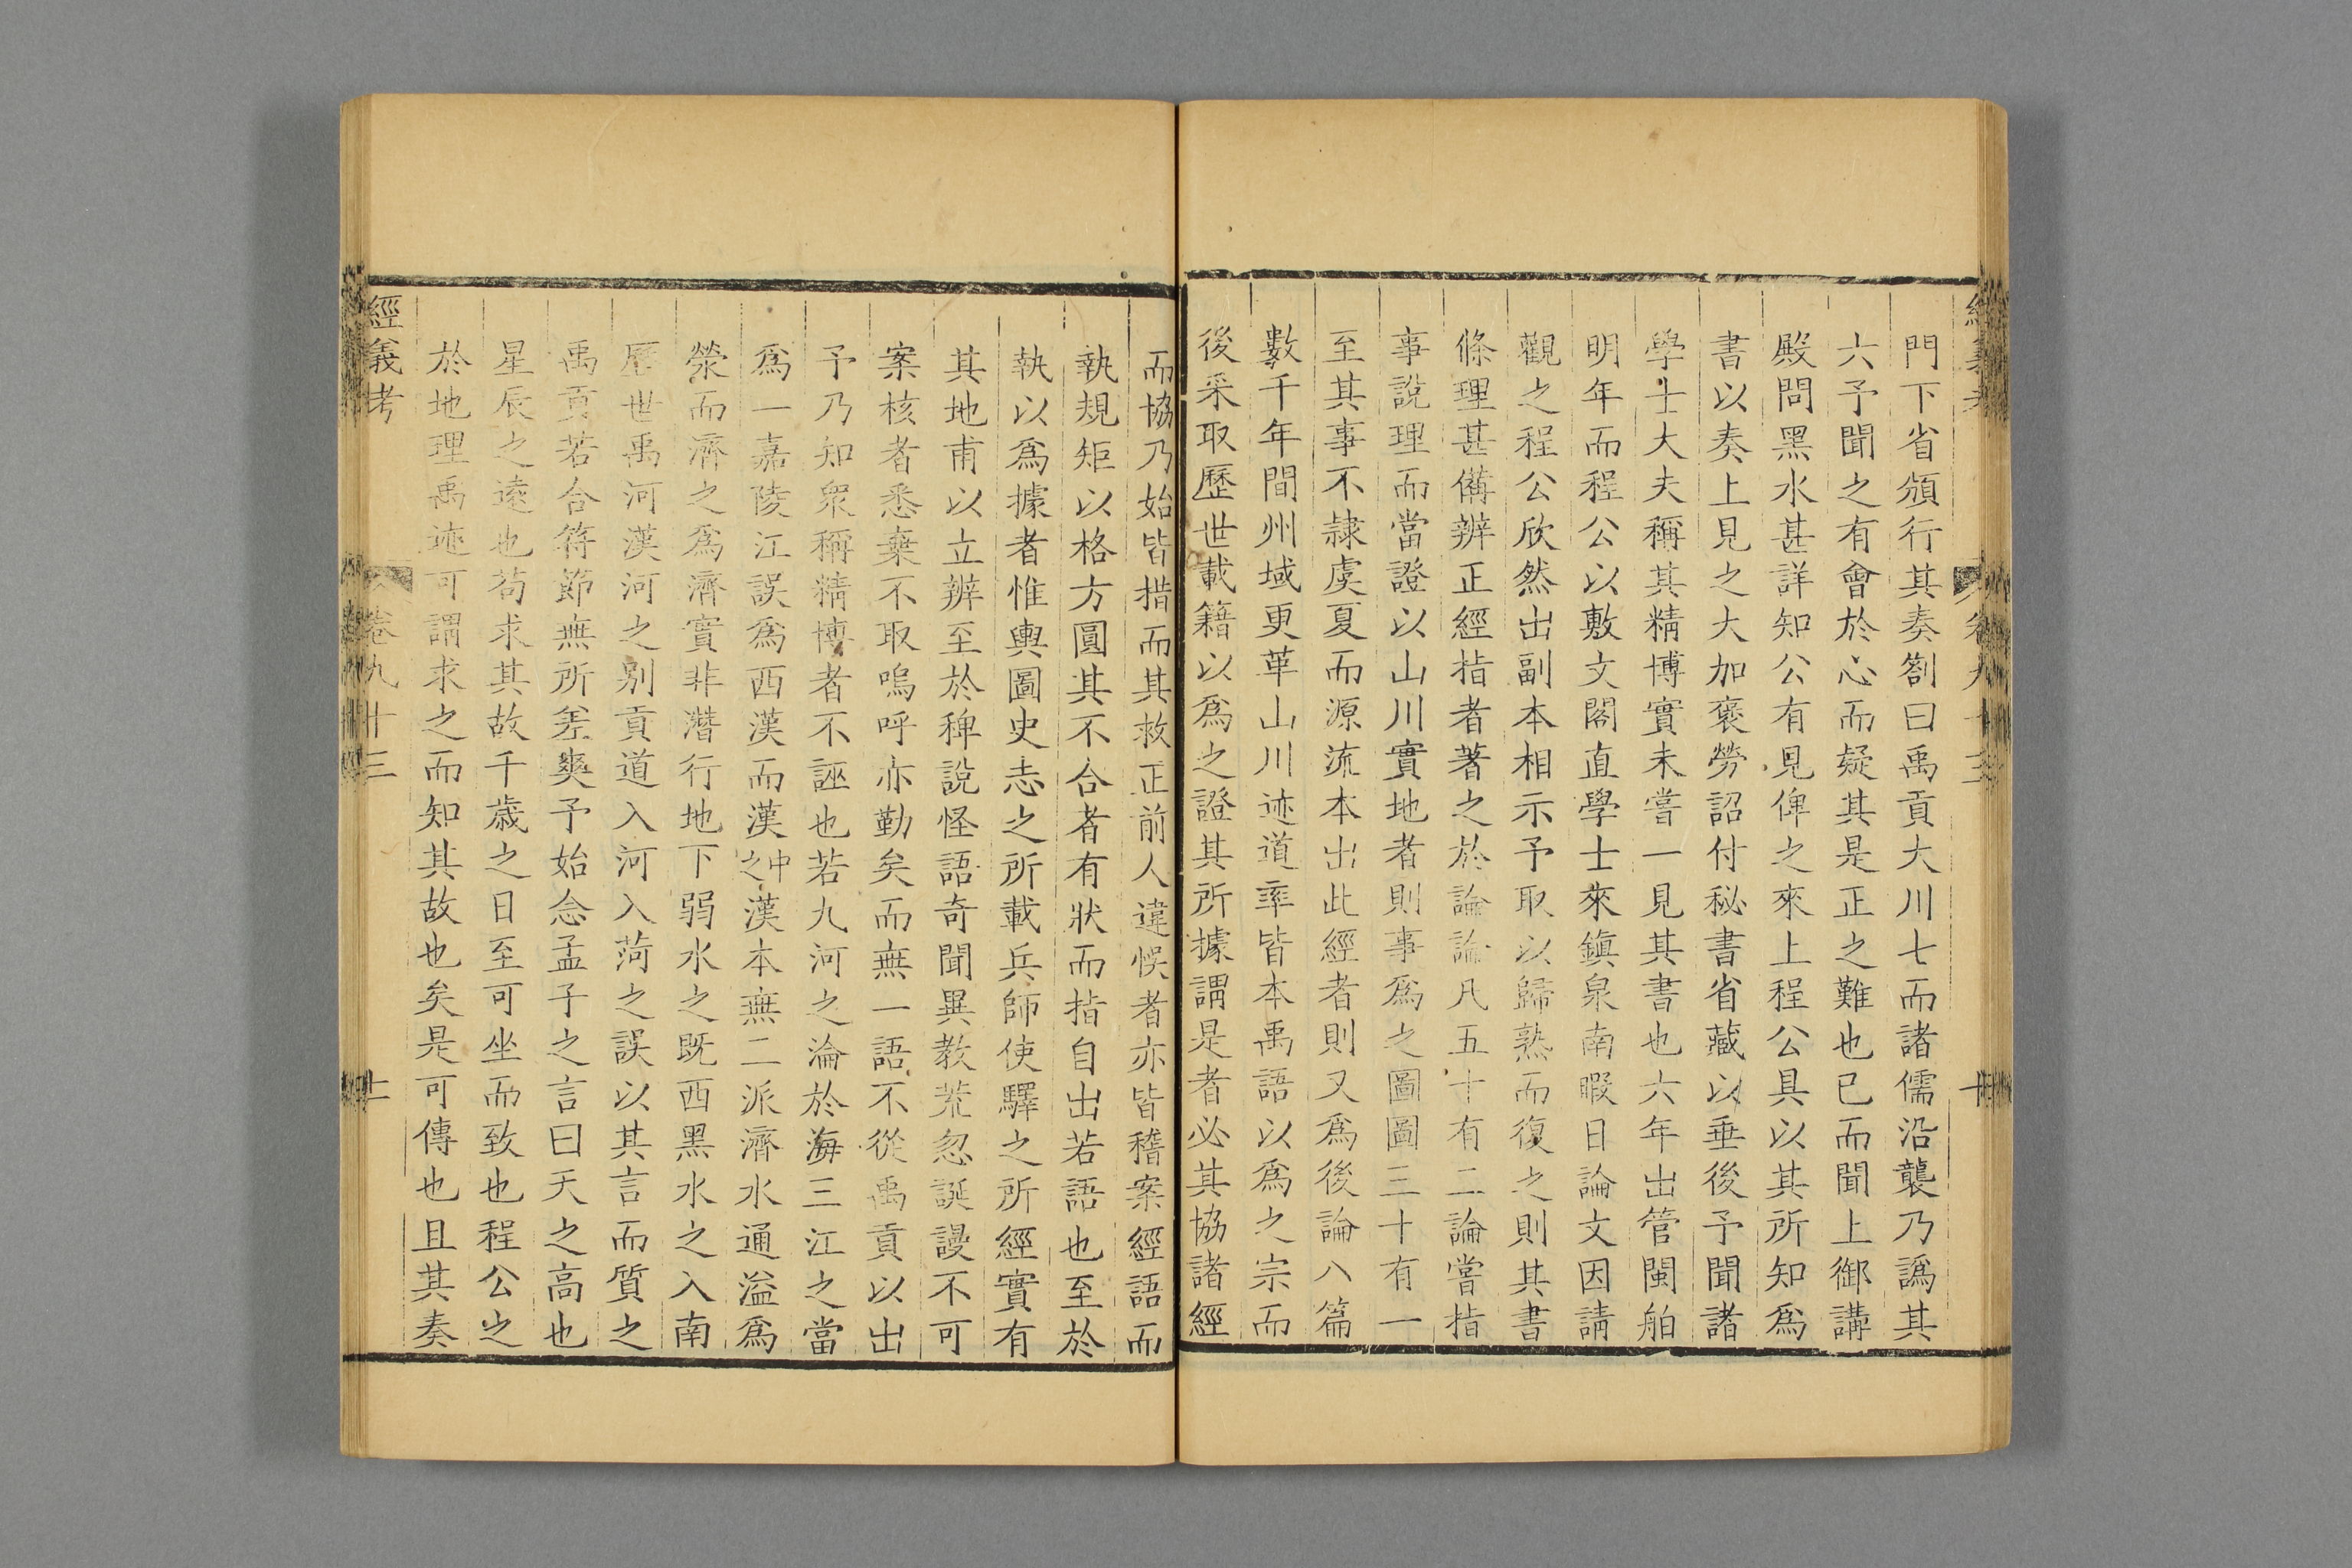 經義考 卷九十三 十
門下省頒行其奏劄曰禹貢大川七而諸儒沿襲乃譌其
六予聞之有會於心而疑其是正之難也已而聞上御講
殿問黑水甚詳知公有見俾之來上程公具以其所知爲
書以奏上見之大加褒勞詔付秘書省藏以垂後予聞諸
學士大夫稱其精博實未嘗一見其書也六年出管閩舶
明年而程公以敷文閣直學士來鎮泉南暇日論文因請
觀之程公欣然出副本相示予取以歸熟而復之則其書
條理甚備辨正經指者著之於論論凡五十有二論嘗指
事說理而當證以山川實地者則事爲之圖圖三十有一
至其事不隷虞夏而源流本出此經者則又爲後論八篇
數千年間州域更革山川迹道率皆本禹語以爲之宗而
後采取歷世載籍以爲之證其所據謂是者必其協諸經
而協乃始皆措而其救正前人違悞者亦皆稽案經語而
執規矩以格方圓其不合者有狀而指自出若語也至於
執以爲據者惟輿圖史志之所載兵師使驛之所經實有
其地甫以立辨至於稗說怪語奇聞異教荒忽誕謾不可
案核者悉棄不取嗚呼亦勤矣而無一語不從禹貢以出
予乃知衆稱精博者不誣也若九河之淪於海三江之當
爲一嘉陵江誤爲西漢而漢中之漢本無二派濟水通溢爲
滎而濟之爲濟實非潛行地下弱水之既西黑水之入南
歷世禹河漢河之別貢道入河入菏之誤以其言而質之
禹貢若合符節無所差爽予始念孟子之言曰天之高也
星辰之遠也苟求其故千歲之日至可坐而致也程公之
於地理禹迹可謂求之而知其故也矣是可傳也且其奏
經義考 卷九十三 十